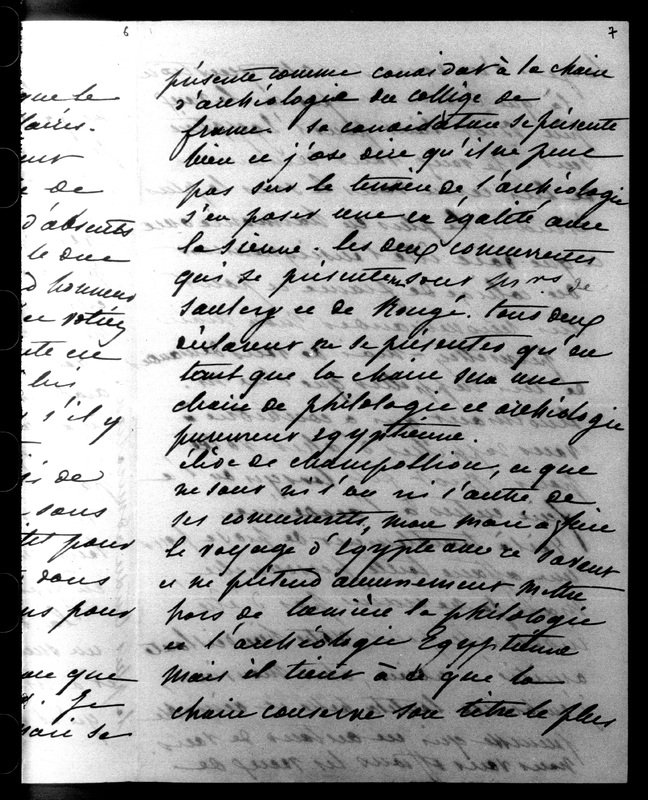 6
7
que le
llaires.
de
d'absents
le duc
d honneur
s'il y
de
sous
pour
dans
pour
que
Je
mari se
présente comme candidat à la chaire
d'archéologie du collège de
france. sa candidature se présente
bien et j'ose dire qu'il ne peut
pas sur le terrein de l'archéologie
s'en poser une en égalité avec
la sienne. les deux concurrents
qui se présentent sont Mrs de
Saulcy et de Rougé. tous deux
déclarent ne se présenter qu'en
tant que la chaire sera une
chaire de philologie et archéologie
purement égyptienne.
élève de champollion, ce que
ne sont ni l'un ni l'autre de
ses concurrents, mon mari a fait
le voyage d'Égypte avec ce savant
et ne prétend aucunement mettre
hors de lumière la philologie
et l'archéologie Egyptienne
mais il tient à ce que la
chaire conserve son titre le plus